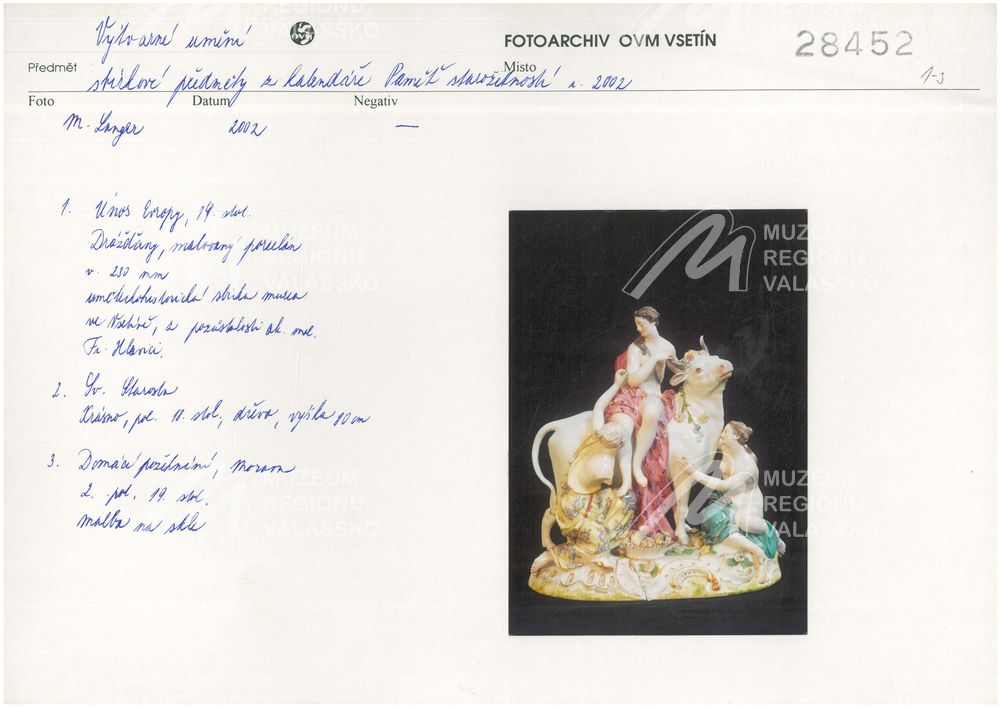 Výtvarné umění
OVM
FOTOARCHIV OVM VSETÍN
28452
Předmět
Místo
sbírkové předměty z kalendáře Paměť starožitností r. 2002
1-3
Foto Datum Negativ
M. Langer 2002 —
1. Únos Evropy, 19. stol.
Drážďany, malovaný porcelán
v. 230 mm
uměleckohistorická sbírka muzea
ve Vsetíně, z pozůstalosti ak. mal.
Fr. Hlavici.
2. Sv. Starosta
Krásno, pol. 18. stol., dřevo, výška 80 cm
3. Domácí požehnání, Morava
2. pol. 19. stol.
malba na skle
MUZEUM
REGIONU
VALAŠSKO
MUZEUM
REGIONU
VALAŠSKO
MUZEUM
REGIONU
VALAŠSKO
MUZEUM
REGIONU
VALAŠSKO
MUZEUM
REGIONU
VALAŠSKO